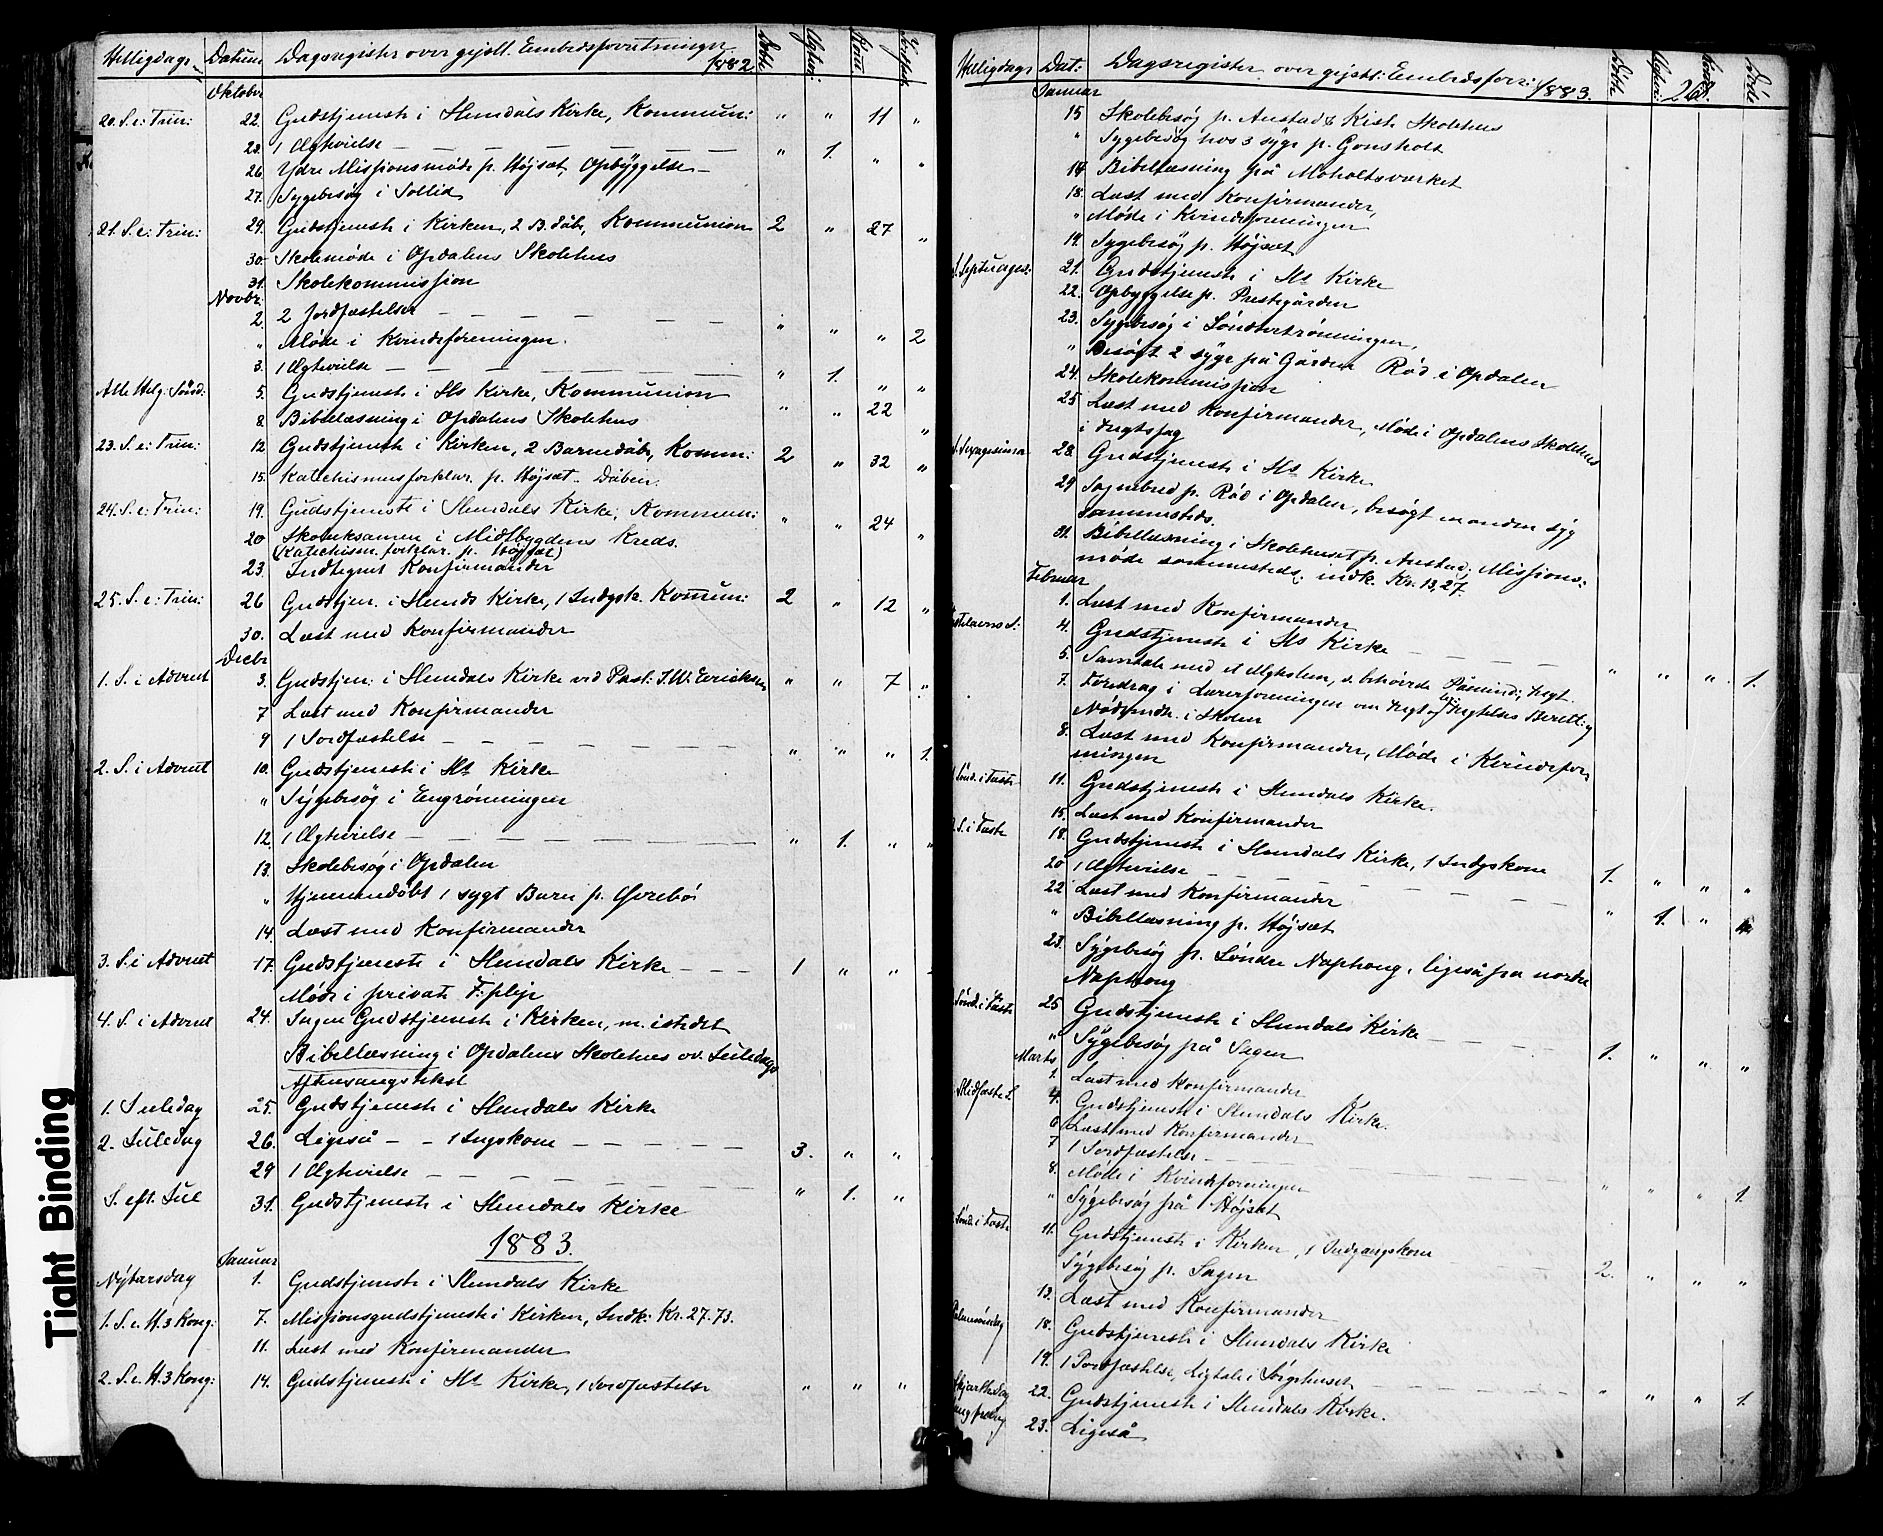 Helligdage Datum Dagsregister over gejstl. Embedsforretninger 1882 Døbte Ægtevi: Komm
Oktober
20. S. e: Trin: 22. Gudstjeneste i Slemdals Kirke, Kommun: " " 11 "
23. 1 Ægtevielse — — — — " 1. " "
26. Ydre Missionsmøde p. Højsæt, Opbyggelse —
27. Sygebesøg i Sollid
21. S. e: Trin: 29. Gudstjeneste i Kirken, 2 B. dåb, Kommunion 2 " 27 "
30. Skolemøde i Opdalens Skolehus
31. Skolekommission
Novbr.
2. 2 Jordfæstelser — — — — " " " 2
" Møde i Kvindeforeningen.
3. 1 Ægtevielse — — — — " 1. " "
Alle Helg. Sønd: 5. Gudstjeneste i Sls Kirke, Kommunion " " 22 "
8. Bibellæsning i Opdalens Skolehus
23. S. e: Trin: 12. Gudstjeneste i Kirken, 2 Barnedåb, Komm: 2 " 32 "
15. Katechismusforklar. p. Højsæt. Dåben.
24. S. e: Trin: 19. Gudstjeneste i Slemdals Kirke, Kommun: " " 24 "
20 Skoleksamen i Midtbygdens Kreds.
(Katechism. forklar. p. Højsæt)
23. Indtegnet Konfirmander
25. S. e: Trin: 26 Gudstjen. i Slemds Kirke, 1 Indgsk. Kommun: 2 " 12 "
30. Læst med Konfirmander
Decbr
1. S. i Advent 3. Gudstjen: i Slemdals Kirke ved Past: J. W. Ericksen " " 7 "
7 Læst med Konfirmander
9 1 Jordfæstelse — — — — " " " 1.
2. S. i Advent 10. Gudstjeneste i Sls Kirke
" Sygebesøg i Engrønningen
12. 1 Ægtevielse — — — — " 1. " "
13. Skolebesøg i Opdalen
" Hjemmedøbt 1 sygt Barn p. Øvrebø
14. Læst med Konfirmander
3. S. i Advent 17. Gudstjeneste i Slemdals Kirke — — — 1 " "
Møde i privat F:pleje
4. S. i Advent 24. Ingen Gudstjeneste i Kirken, m. istedet
Bibellæsning i Opdalens Skolehus ov. Juledags
Aftensangstekst
1. Juledag 25. Gudstjeneste i Slemdals Kirke
2. Juledag 26. Ligeså — — 1 Ingskone — — — — 3. " "
29 1 Ægtevielse — — — — " 1. "
S. eft. Jul 31. Gudstjeneste i Slemdals Kirke
1883.
Januar
Nytårsdag 1. Gudstjeneste i Slemdals Kirke
1. S. e. H. 3 Kong: 7. Missionsgudstjeneste i Kirken, Indk: Kr. 27.73.
11. Læst med Konfirmander
2. S. e. H. 3 Kong: 14. Gudstjeneste i Sls Kirke, 1 Jordfæstelse " " "
Tight Binding
Helligdage Dat: Dagsregister over gejstl: Embedsforr: 1883. Døbte
Januar
15 Skolebesøg p. Anstad & Kise Skolehus
" Sygebesøg hos 3 syge p. Gonsholt
17 Bibellæsning på Moholtsværket
18. Læst med Konfirmander,
" Møde i Kvindeforeningen
19. Sygebesøg p. Højsæt
S. Septuages: 21. Gudstjeneste i Sls Kirke
22. Opbyggelse p. Prestegården
23. Sygebesøg i Søndretrønningen,
" Besøgt 2 syge på Gården Rød i Opdalen
24. Skolekommission
25 Læst med Konfirmander, Møde i Opdalens Skolehus
S. Sexagesima 28. Gudstjeneste i Sls Kirke
29 Sognebud p. Rød i Opdalen, besøgt manden syg
sammesteds.
31. Bibellæsning i Skolehuset p. Anstad; Missions-
møde sammesteds, indk. Kr. 13,27.
Februar
1. Læst med Konfirmander
4. Gudstjeneste i Sls Kirke — — — — " " " 1.
7. Foredrag i Lærerforeningen om
Nødvendh. i Skolen
8. Læst med Konfirmander, Møde i Kvindefor-
ningen
Sønd. i Faste 11. Gudstjeneste i Slemdals Kirke.
15. Læst med Konfirmander
S. i Faste 18. Gudstjeneste i Slemdals Kirke, 1 Indgskone 1. " " "
20 1 Ægtevielse — — — —
22 Læst med Konfirmander " 1. "
" Bibellæsning p. Højsæt
23. Sygebesøg p. Søndre Naphoug, ligeså på nordre
Naphoug
Sønd. i Faste 25 Gudstjeneste i Slemdals Kirke — — — 1. " " "
" Sygebesøg på Sagen
Marts
1. Læst med Konfirmander
Midfaste S. 4. Gudstjeneste i Slemdals Kirke.
6 Læst med Konfirmander
7 1 Jordfæstelse — — — — " " " 1.
8. Møde i Kvindeforeningen
" Sygebesøg på Højsæt
Sønd. i Faste 11. Gudstjeneste i Kirken, 1 Indgangskone 2. " " "
Sygebesøg p. Sagen
13. Læst med Konfirmander
Palmesøndag 18. Gudstjeneste i Slemdals Kirke
19. 1 Jordfæstelse, Ligtale i Sørgehuset " " " 1.
Skjærthsdag 22. Gudstjeneste i Slemdals Kirke.
Langfredag 23. Ligeså